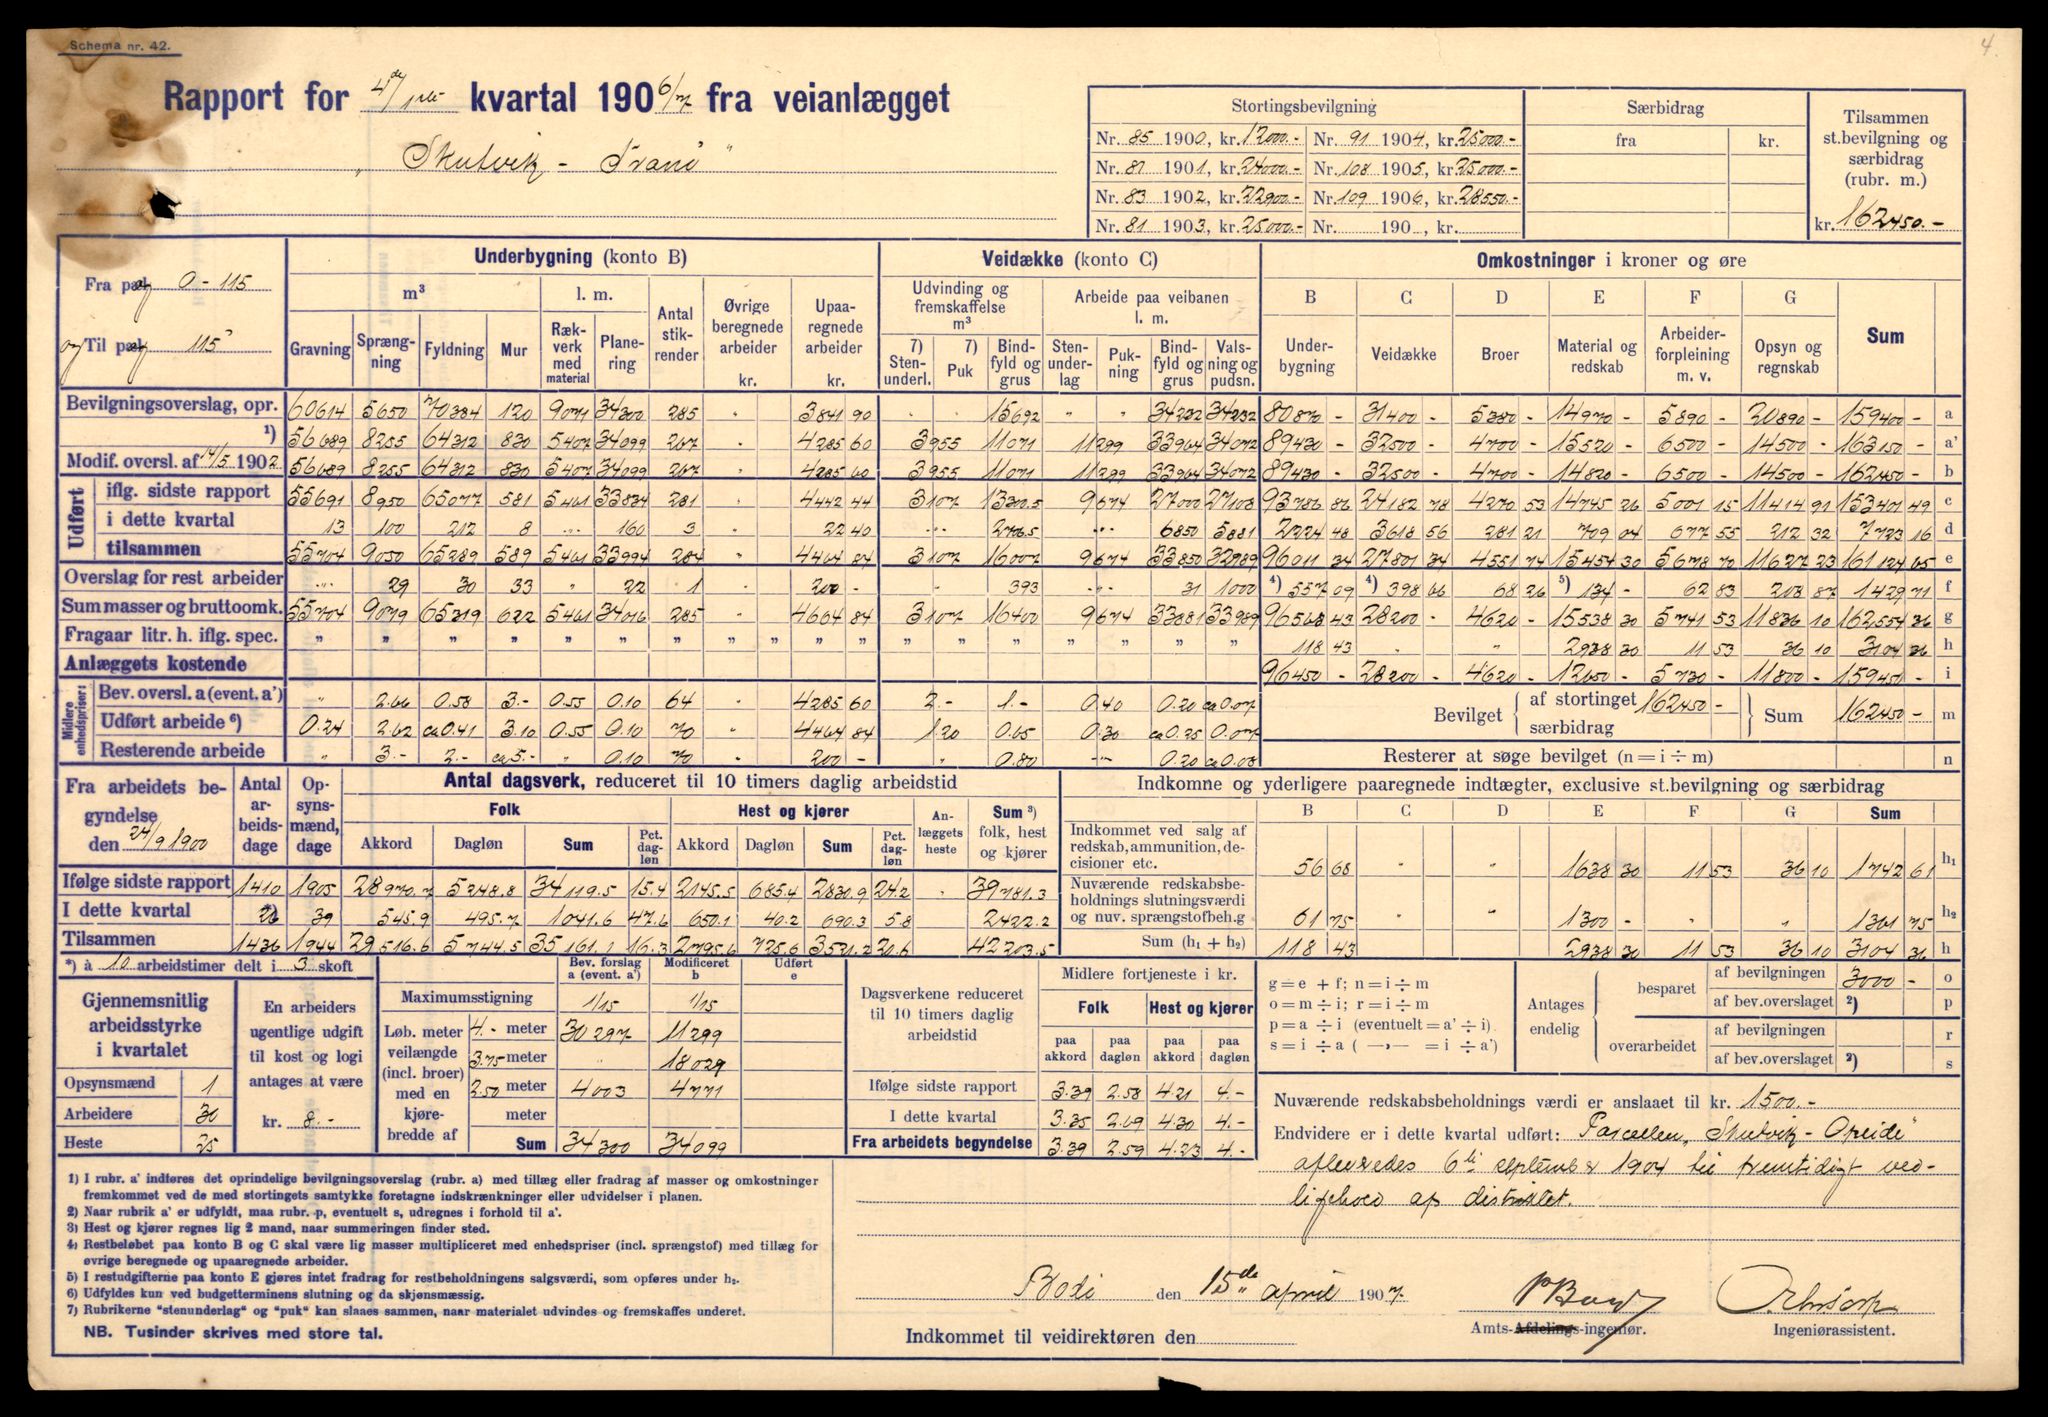 4.
Schema nr. 42.
Rapport for 4de/1ste kvartal 1906/7 fra veianlægget
„Skutvik - Tranö“
Stortingsbevilgning
Nr. 85 1900, kr. 12000.- Nr. 91 1904, kr. 25000.-
Nr. 87 1901, kr. 24000.- Nr. 108 1905, kr. 25000.-
Nr. 83 1902, kr. 22900.- Nr. 109 1906, kr. 28550.-
Nr. 81 1903, kr. 25000.- Nr. 190 , kr.
Særbidrag
fra kr.
Tilsammen
st.bevilgning og
særbidrag
(rubr. m.)
kr. 162450.-
Fra pæl 0 - 115
og Til pæl 115
Underbygning (konto B) Veidække (konto C) Omkostninger i kroner og øre
m³ l. m. Antal stikrender Øvrige beregnede arbeider kr. Upaaregnede arbeider kr.
Gravning Sprængning Fyldning Mur Rækverk med material Planering
Udvinding og fremskaffelse m³ Arbeide paa veibanen l. m.
7) Stenunderl. 7) Puk Bindfyld og grus Stenunderlag Pukning Bindfyld og grus Valsning og pudsn.
B C D E F G Sum
Underbygning Veidække Broer Material og redskab Arbeiderforpleining m. v. Opsyn og regnskab
Bevilgningsoverslag, opr. 60614 5650 70384 120 9071 34300 285 „ 3841 90 15692 „ „ 34232 34232 80870 - 31400 - 5380 - 14970 - 5890 - 20890 - 159400 - a
1) 56689 8255 64312 830 5407 34099 267 „ 4285 60 3955 11071 11299 33964 34072 89430 - 32500 - 4700 - 15520 - 6500 - 14500 - 163150 - a'
Modif. oversl. af 14/5 1902 56689 8255 64312 830 5407 34099 267 „ 4285 60 3955 11071 11299 33964 34072 89430 - 32500 - 4700 - 14820 - 6500 - 14500 - 162450 - b
Udført
iflg. sidste rapport 55691 8950 65077 581 5461 33834 281 „ 4442 44 3107 13300.5 9674 27000 27108 93786 86 24182 78 4270 53 14745 26 5001 15 11414 91 153401 49 c
i dette kvartal 13 100 212 8 „ 160 3 22 40 „ 2706.5 „ 6850 5881 2224 48 3618 56 281 21 709 04 677 55 212 32 7723 16 d
tilsammen 55704 9050 65289 589 5461 33994 284 „ 4464 84 3107 16007 9674 33850 32989 96011 34 27801 34 4551 74 15454 30 5678 70 11627 23 161124 65 e
Overslag for rest arbeider „ 29 30 33 „ 22 1 200 - „ 393 „ 31 1000 4) 557 09 4) 398 66 68 26 5) 134 - 62 83 208 87 1429 71 f
Sum masser og bruttoomk. 55704 9079 65319 622 5461 34016 285 „ 4664 84 3107 16400 9674 33881 33989 96568 43 28200 - 4620 - 15538 30 5741 53 11836 10 162554 36 g
Fragaar litr. h. iflg. spec. „ „ „ „ „ „ „ „ „ „ „ „ „ „ „ „ „ 118 43 „ „ 2938 30 11 53 36 10 3104 36 h
Anlæggets kostende 96450 - 28200 - 4620 - 12650 - 5730 - 11800 - 159450 - i
Midlere enhedspriser:
Bev. oversl. a (event. a') „ 2.66 0.58 3.- 0.55 0.10 64 „ 4285 60 2.- 1.- 0.40 0.20 ca 0.07
Udført arbeide 6) 0.24 2.62 ca 0.41 3.10 0.55 0.10 70 „ 4464 84 1.20 0.65 0.30 ca 0.25 0.07
Resterende arbeide „ 3.- 2.- ca 5.- „ 0.10 70 200 - „ 0.80 „ 0.20 ca 0.08
Bevilget af stortinget 162450 - særbidrag Sum 162450 - m
Resterer at søge bevilget (n = i ÷ m) n
Fra arbeidets begyndelse den 24/9 1900
Antal arbeidsdage Opsynsmænd, dage
Antal dagsverk, reduceret til 10 timers daglig arbeidstid
Folk Hest og kjører Anlæggets heste Sum 3) folk, hest og kjører
Akkord Dagløn Sum Pct. dagløn Akkord Dagløn Sum Pct. dagløn
Ifølge sidste rapport 1410 1905 28970.7 5248.8 34119.5 15.4 2145.5 685.4 2830.9 24.2 „ 39781.3
I dette kvartal 26 39 545.9 495.7 1041.6 47.6 650.1 40.2 690.3 5.8 2422.2
Tilsammen 1436 1944 29516.6 5744.5 35161.1 16.3 2795.6 725.6 3521.2 20.6 42203.5
Indkomne og yderligere paaregnede indtægter, exclusive st.bevilgning og særbidrag
B C D E F G Sum
Indkommet ved salg af redskab, ammunition, decisioner etc. 56 68 „ „ 1638 30 11 53 36 10 1742 61 h₁
Nuværende redskabsbeholdnings slutningsværdi og nuv. sprængstofbeh.g 61 75 „ „ 1300 - „ „ 1361 75 h₂
Sum (h₁ + h₂) 118 43 2938 30 11 53 36 10 3104 36 h
*) à 10 arbeidstimer delt i 3 skoft
Gjennemsnitlig arbeidsstyrke i kvartalet
Opsynsmænd 1
Arbeidere 30
Heste 25
En arbeiders ugentlige udgift til kost og logi antages at være kr. 8.-
Bev. forslag a (event. a') Modificeret b Udført e
Maximumsstigning 1/15 1/15
Løb. meter veilængde (incl. broer) med en kjørebredde af
4.- meter 30297 11299
3.75 meter „ 18029
2.50 meter 4003 4771
meter
Sum 34300 34099
Dagsverkene reduceret til 10 timers daglig arbeidstid
Midlere fortjeneste i kr.
Folk Hest og kjører
paa akkord paa dagløn paa akkord paa dagløn
Ifølge sidste rapport 3.39 2.58 4.21 4.-
I dette kvartal 3.35 2.69 4.30 4.-
Fra arbeidets begyndelse 3.39 2.59 4.23 4.-
g = e + f; n = i ÷ m
o = m ÷ i; r = i ÷ m
p = a ÷ i (eventuelt = a' ÷ i).
s = i ÷ a ( —„— = i ÷ a')
Antages endelig
besparet af bevilgningen 3000 - o
af bev.overslaget 2) p
overarbeidet af bevilgningen r
af bev.overslaget 2) s
Nuværende redskabsbeholdnings værdi er anslaaet til kr. 1500.-
Endvidere er i dette kvartal udført: Parcellen „Skutvik - Opeide“
afleveredes 6te september 1904 til fremtidigt ved-
ligehold af distriktet.
1) I rubr. a' indføres det oprindelige bevilgningsoverslag (rubr. a) med tillæg eller fradrag af masser og omkostninger
fremkommet ved de med stortingets samtykke foretagne indskrænkninger eller udvidelser i planen.
2) Naar rubrik a' er udfyldt, maa rubr. p, eventuelt s, udregnes i forhold til a'.
3) Hest og kjører regnes lig 2 mand, naar summeringen finder sted.
4) Restbeløbet paa konto B og C skal være lig masser multipliceret med enhedspriser (incl. sprængstof) med tillæg for
øvrige beregnede og upaaregnede arbeider.
5) I restudgifterne paa konto E gjøres intet fradrag for restbeholdningens salgsværdi, som opføres under h₂.
6) Udfyldes kun ved budgetterminens slutning og da skjønsmæssig.
7) Rubrikerne "stenunderlag" og "puk" kan slaaes sammen, naar materialet udvindes og fremskaffes underet.
NB. Tusinder skrives med store tal.
Bodö den 15de april 1907.
Amts-Afdelings-ingeniør.
Ingeniørassistent.
Indkommet til veidirektören den